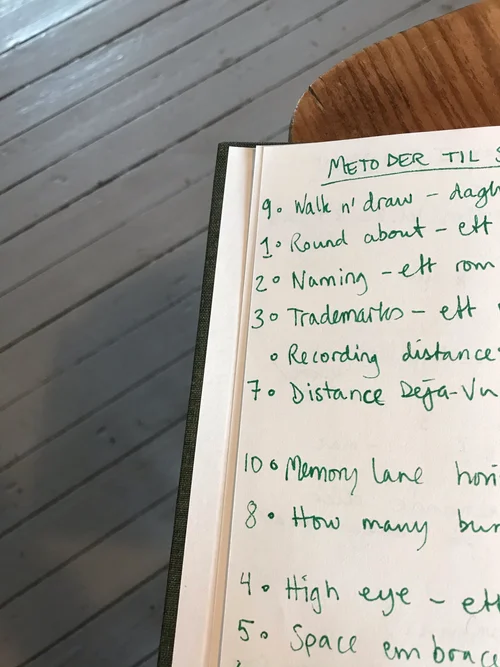 METODER TIL S
9. Walk n' draw – dagl
1. Round about – ett
2. Naming – ett rom
3. Trademarks – ett
• Recording distance
7. Distance Deja-Vu
10. Memory Lane hori
8. How many bur
4. High eye – ett
5. Space embrace